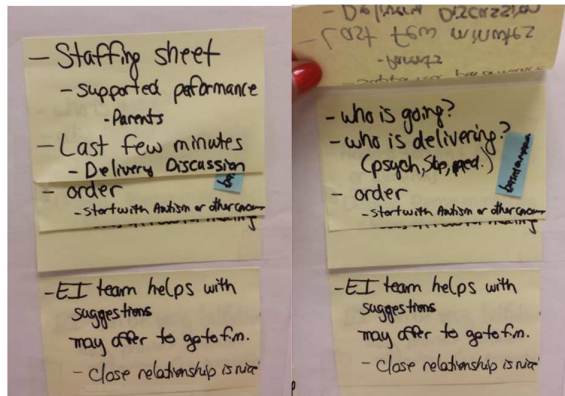 - Staffing sheet
- supported paformance
- Parents
- Last few minutes
- Delivery Discussion
- order
- start with Autism or other concern
- EI team helps with
suggestions
may offer to go to fim.
- close relationship is nice
- Delivery Discussion
- Last few minutes
- Parents
- who is going?
- who is delivering?
(psych, Slp, ped.)
- order
- start with Autism or other concern
- EI team helps with
suggestions
may offer to go to fim.
- close relationship is nice